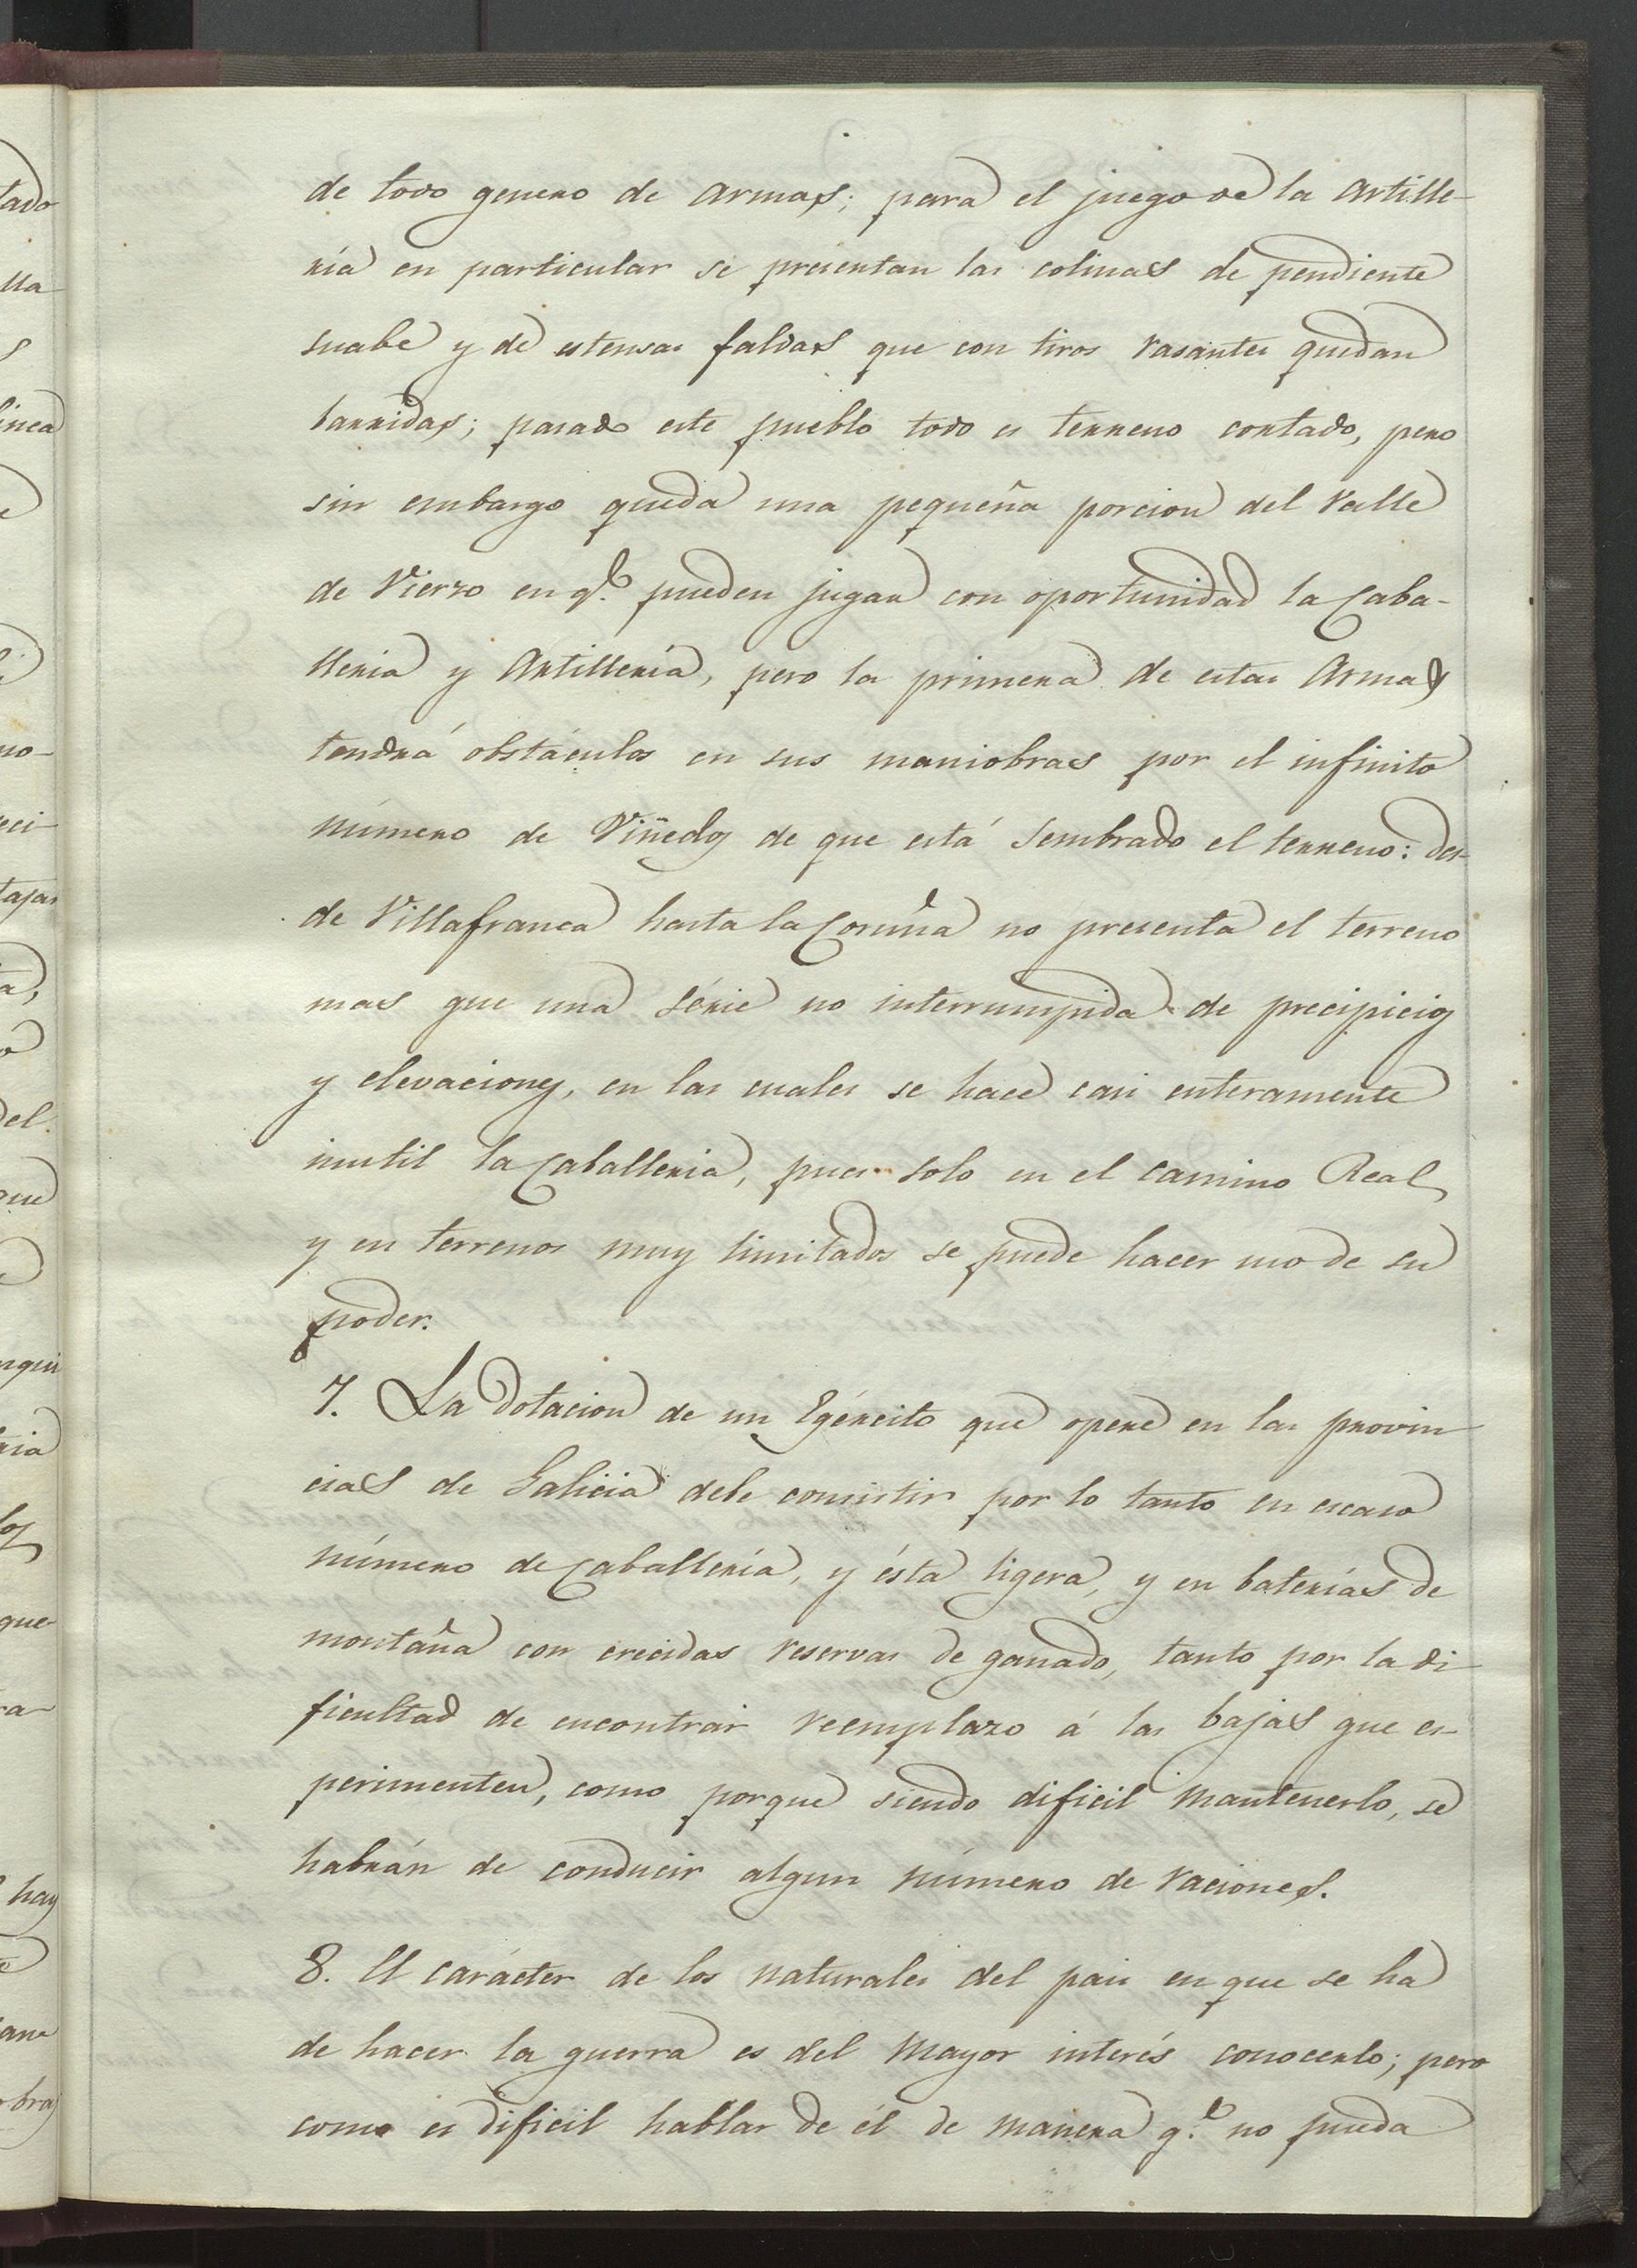 de todo genero de armas; para el juego de la Artille-
ría en particular se presentan las colinas de pendiente
suabe y de estensas faldas que con tiros rasantes quedan
barridas; pasado este pueblo todo es terreno cortado, pero
sin embargo queda una pequeña porcion del Valle
de Vierzo en q.e pueden jugar con oportunidad la Caba-
lleria y Artillería, pero la primera de estas Armas
tendrá obstáculos en sus maniobras por el infinito
número de Viñedos de que está sembrado el terreno: des-
de Villafranca hasta la Coruña no presenta el terreno
mas que una série no interrumpida de precipicios
y elevaciones, en las cuales se hace casi enteramente
inutil la Caballeria, pues solo en el camino Real
y en terrenos muy limitados se puede hacer uso de su
poder.
7. La dotacion de un Egército que opere en las provin-
cias de Galicia debe consistir por lo tanto en escaso
número de Caballería, y ésta ligera, y en baterías de
montaña con crecidas reservas de ganado, tanto por la di-
ficultad de encontrar reemplazo á las bajas que es-
perimenten, como porque siendo dificil mantenerlo, se
habrán de conducir algun número de raciones.
8. El carácter de los naturales del pais en que se ha
de hacer la guerra es del mayor interés conocerlo; pero
como es dificil hablar de él de manera q.e no pueda
tado
lla
s
linea
no-
eci-
tajas
del
que
ria
los
que
ra-
hay
ana
bras